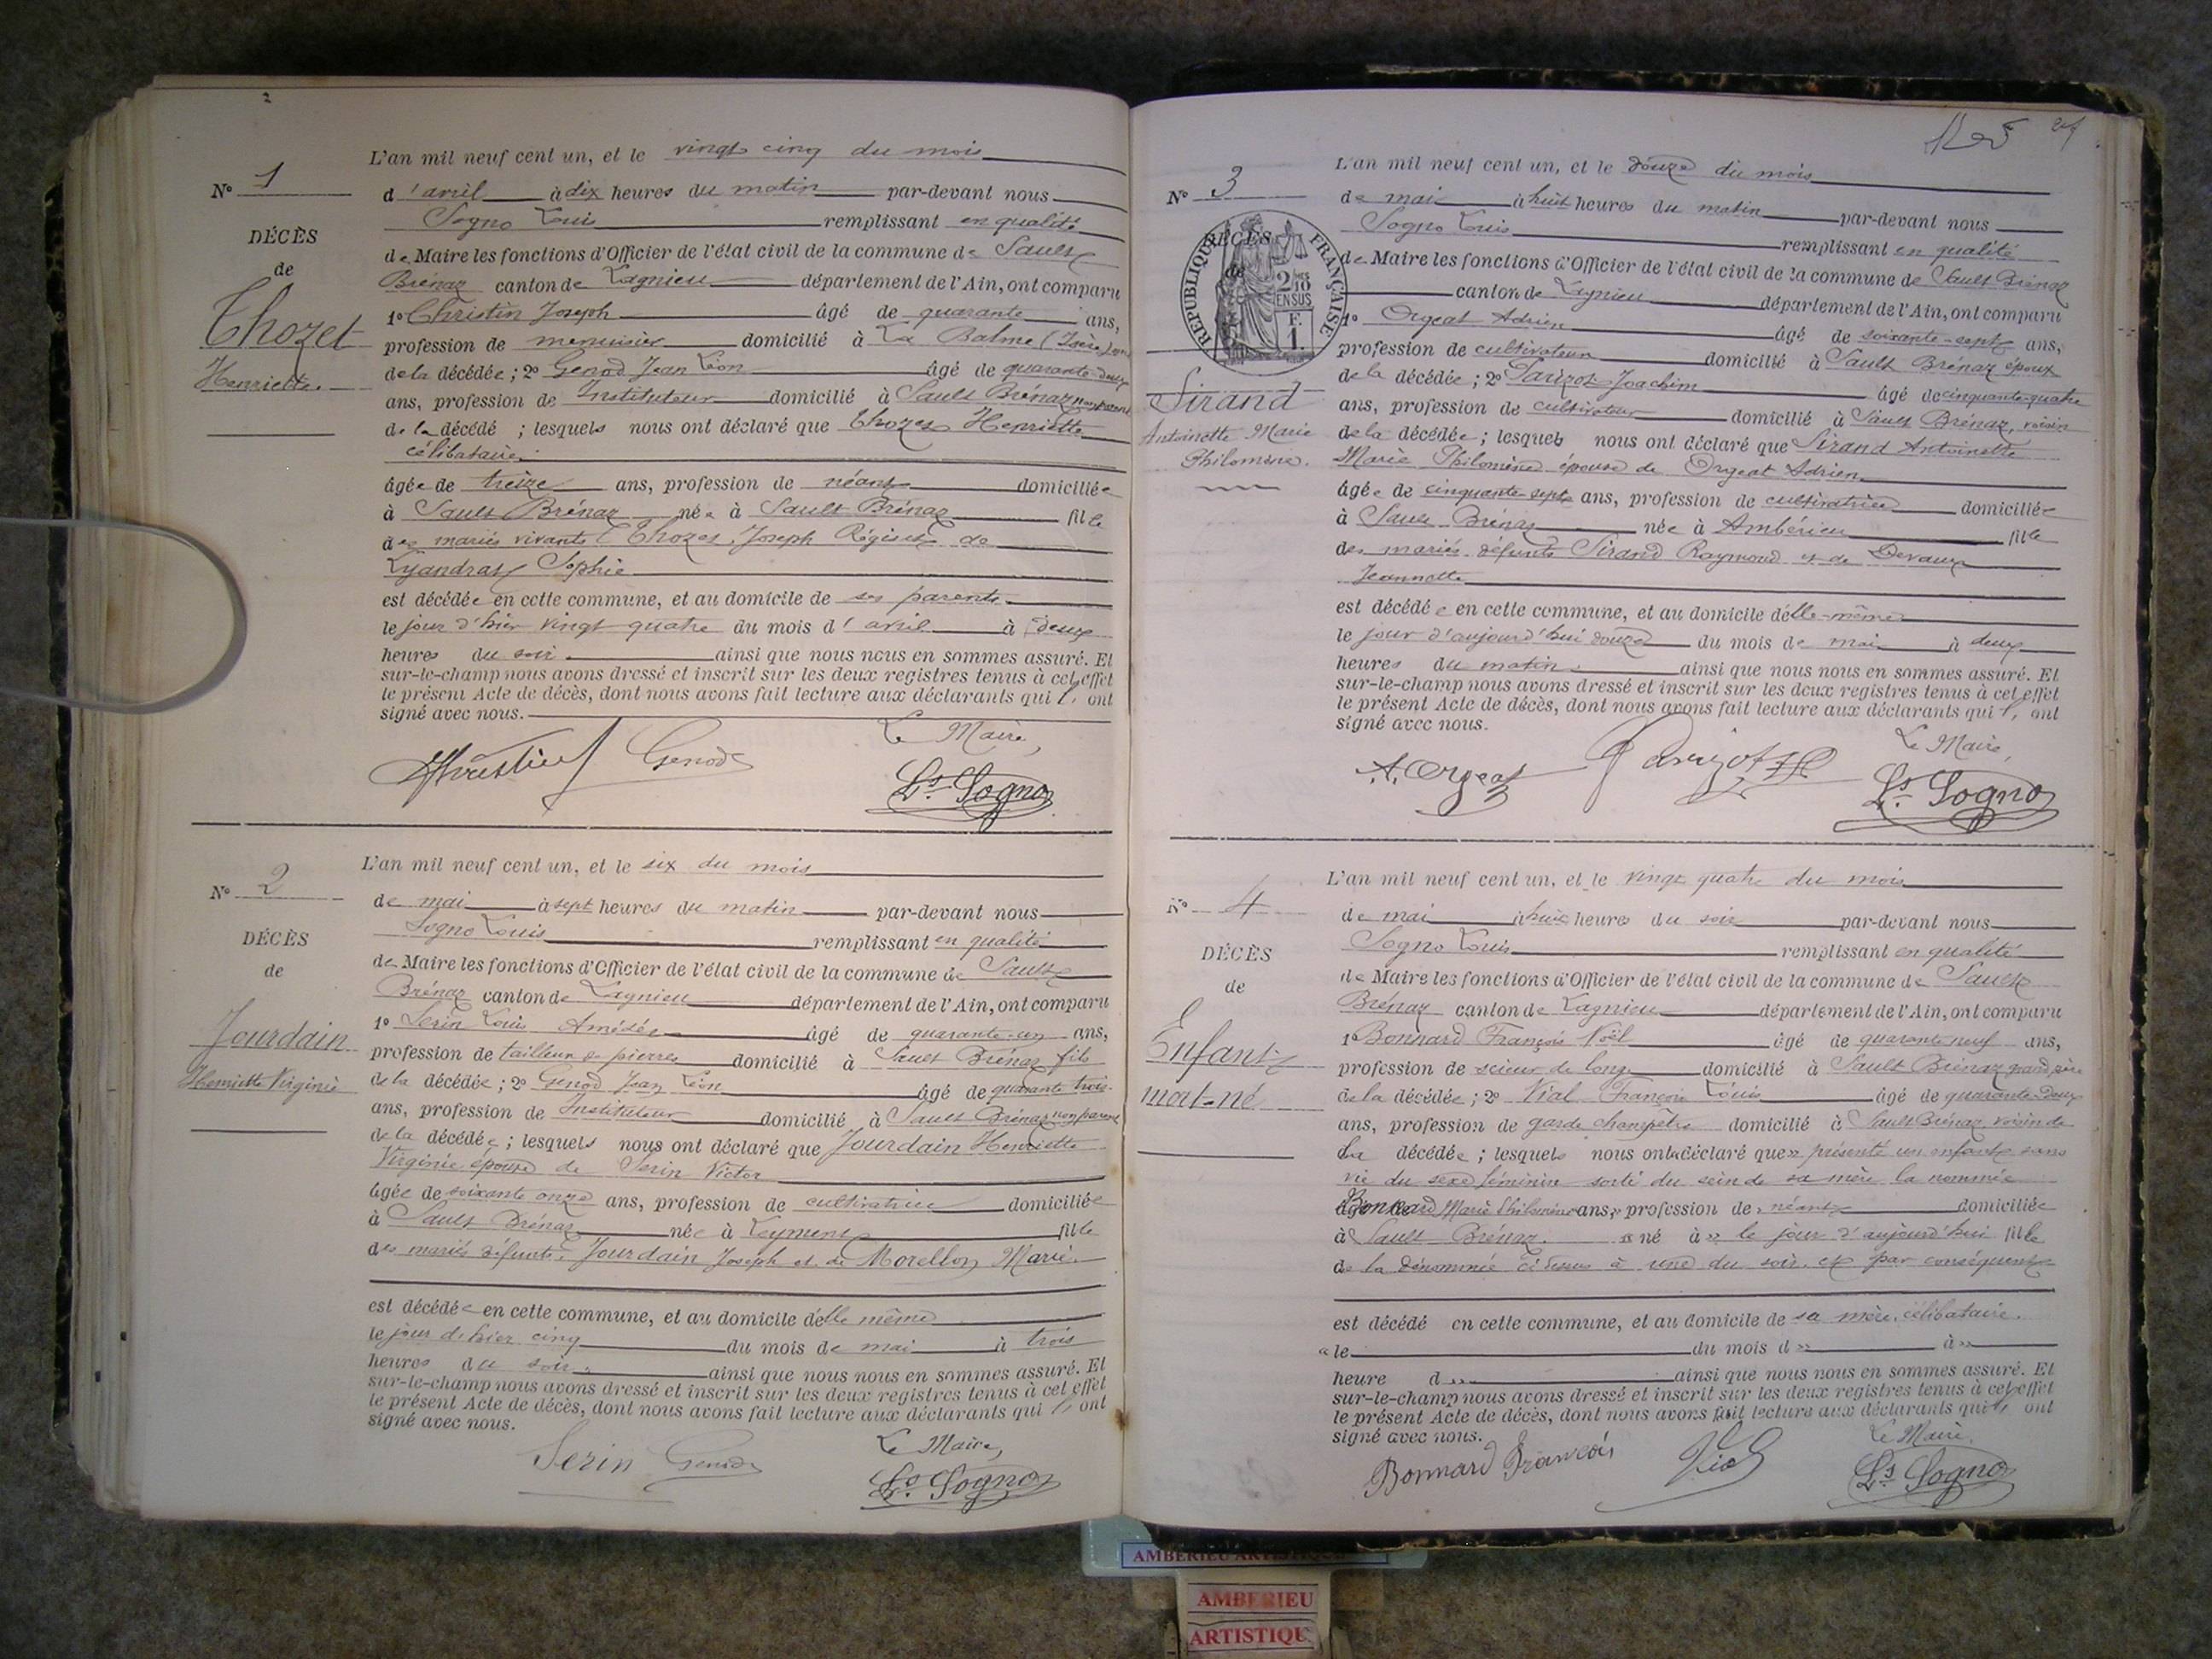 2
L'an mil neuf cent un, et le vingt cinq du mois
N° 1
d'avril à dix heures du matin par-devant nous
Sogno Louis remplissant en qualité
DÉCÈS
de Maire les fonctions d'Officier de l'état civil de la commune de Sault
de
Brénaz canton de Lagnieu département de l'Ain, ont comparu
Thozet
1° Christin Joseph âgé de quarante ans,
profession de menuisier domicilié à La Balme (Isère)
Henriette.
de la décédée ; 2° Genod Jean Léon âgé de quarante-deux
ans, profession de Instituteur domicilié à Sault Brénaz non parent
de la décédé ; lesquels nous ont déclaré que Thozet Henriette
célibataire
âgée de treize ans, profession de néant domiciliée
à Sault Brénaz née à Sault Brénaz fille
des mariés vivants Thozet Joseph Régis et de
Lyandrat Sophie
est décédée en cette commune, et au domicile de ses parents
le jour d'hier vingt quatre du mois d'avril à deux
heures du soir ainsi que nous nous en sommes assuré. Et
sur-le-champ nous avons dressé et inscrit sur les deux registres tenus à cet effet
le présent Acte de décès, dont nous avons fait lecture aux déclarants qui l'ont
signé avec nous.
Le Maire,
Christin Genod Ls. Sogno
L'an mil neuf cent un, et le six du mois
N° 2
de mai à sept heures du matin par-devant nous
Sogno Louis remplissant en qualité
DÉCÈS
de Maire les fonctions d'Officier de l'état civil de la commune de Sault
de
Brénaz canton de Lagnieu département de l'Ain, ont comparu
Jourdain
1° Serin Louis Amédée âgé de quarante-un ans,
profession de tailleur de pierres domicilié à Sault Brénaz fils
Henriette Virginie
de la décédée ; 2° Genod Jean Léon âgé de quarante trois
ans, profession de Instituteur domicilié à Sault Brénaz non parent
de la décédée ; lesquels nous ont déclaré que Jourdain Henriette
Virginie épouse de Serin Victor
âgée de soixante onze ans, profession de cultivatrice domiciliée
à Sault Brénaz née à Leyment fille
des mariés défunts Jourdain Joseph et de Morellon Marie
est décédée en cette commune, et au domicile d'elle même
le jour d'hier cinq du mois de mai à trois
heures du soir ainsi que nous nous en sommes assuré. Et
sur-le-champ nous avons dressé et inscrit sur les deux registres tenus à cet effet
le présent Acte de décès, dont nous avons fait lecture aux déclarants qui l'ont
signé avec nous.
Le Maire,
Serin Genod Ls. Sogno
L'an mil neuf cent un, et le douze du mois
N° 3
de mai à huit heures du matin par-devant nous
Sogno Louis remplissant en qualité
DÉCÈS
de
RÉPUBLIQUE FRANÇAISE
2/10 EN SUS
F. 1.
de Maire les fonctions d'Officier de l'état civil de la commune de Sault Brénaz
canton de Lagnieu département de l'Ain, ont comparu
1° Orgeat Adrien âgé de soixante-sept ans,
profession de cultivateur domicilié à Sault Brénaz époux
de la décédée ; 2° Parizot Joachim âgé de cinquante-quatre
Sirand
ans, profession de cultivateur domicilié à Sault Brénaz, voisin
Antoinette Marie
de la décédée ; lesquels nous ont déclaré que Sirand Antoinette
Philomène.
Marie Philomène épouse de Orgeat Adrien
âgée de cinquante-sept ans, profession de cultivatrice domiciliée
à Sault Brénaz née à Ambérieu fille
des mariés défunts Sirand Raymond et de Devaux
Jeannette
est décédée en cette commune, et au domicile d'elle-même
le jour d'aujourd'hui douze du mois de mai à deux
heures du matin ainsi que nous nous en sommes assuré. Et
sur-le-champ nous avons dressé et inscrit sur les deux registres tenus à cet effet
le présent Acte de décès, dont nous avons fait lecture aux déclarants qui l'ont
signé avec nous.
Le Maire,
A. Orgeat Parizot Ls. Sogno
L'an mil neuf cent un, et le vingt quatre du mois
N° 4
de mai à huit heures du soir par-devant nous
Sogno Louis remplissant en qualité
DÉCÈS
de Maire les fonctions d'Officier de l'état civil de la commune de Sault
de
Brénaz canton de Lagnieu département de l'Ain, ont comparu
Enfant
1° Bonnard François Noël âgé de quarante neuf ans,
profession de scieur de long domicilié à Sault Brénaz grand père
mort-né
de la décédée ; 2° Vial François Louis âgé de quarante-deux
ans, profession de garde champêtre domicilié à Sault Brénaz voisin de
la décédée ; lesquels nous ont déclaré que » présenté un enfant sans
vie du sexe féminin sorti du sein de sa mère la nommée
Bonnard Marie Philomène ans, profession de néant domiciliée
à Sault Brénaz né à » le jour d'aujourd'hui fille
de la dénommée ci dessus à une du soir et par conséquent
est décédé en cette commune, et au domicile de sa mère, célibataire.
« le du mois d » à »
heure d » ainsi que nous nous en sommes assuré. Et
sur-le-champ nous avons dressé et inscrit sur les deux registres tenus à cet effet
le présent Acte de décès, dont nous avons fait lecture aux déclarants qui l'ont
signé avec nous.
Le Maire,
Bonnard François Vial Ls. Sogno
AMBERIEU ARTISTIQUE
AMBERIEU
ARTISTIQU